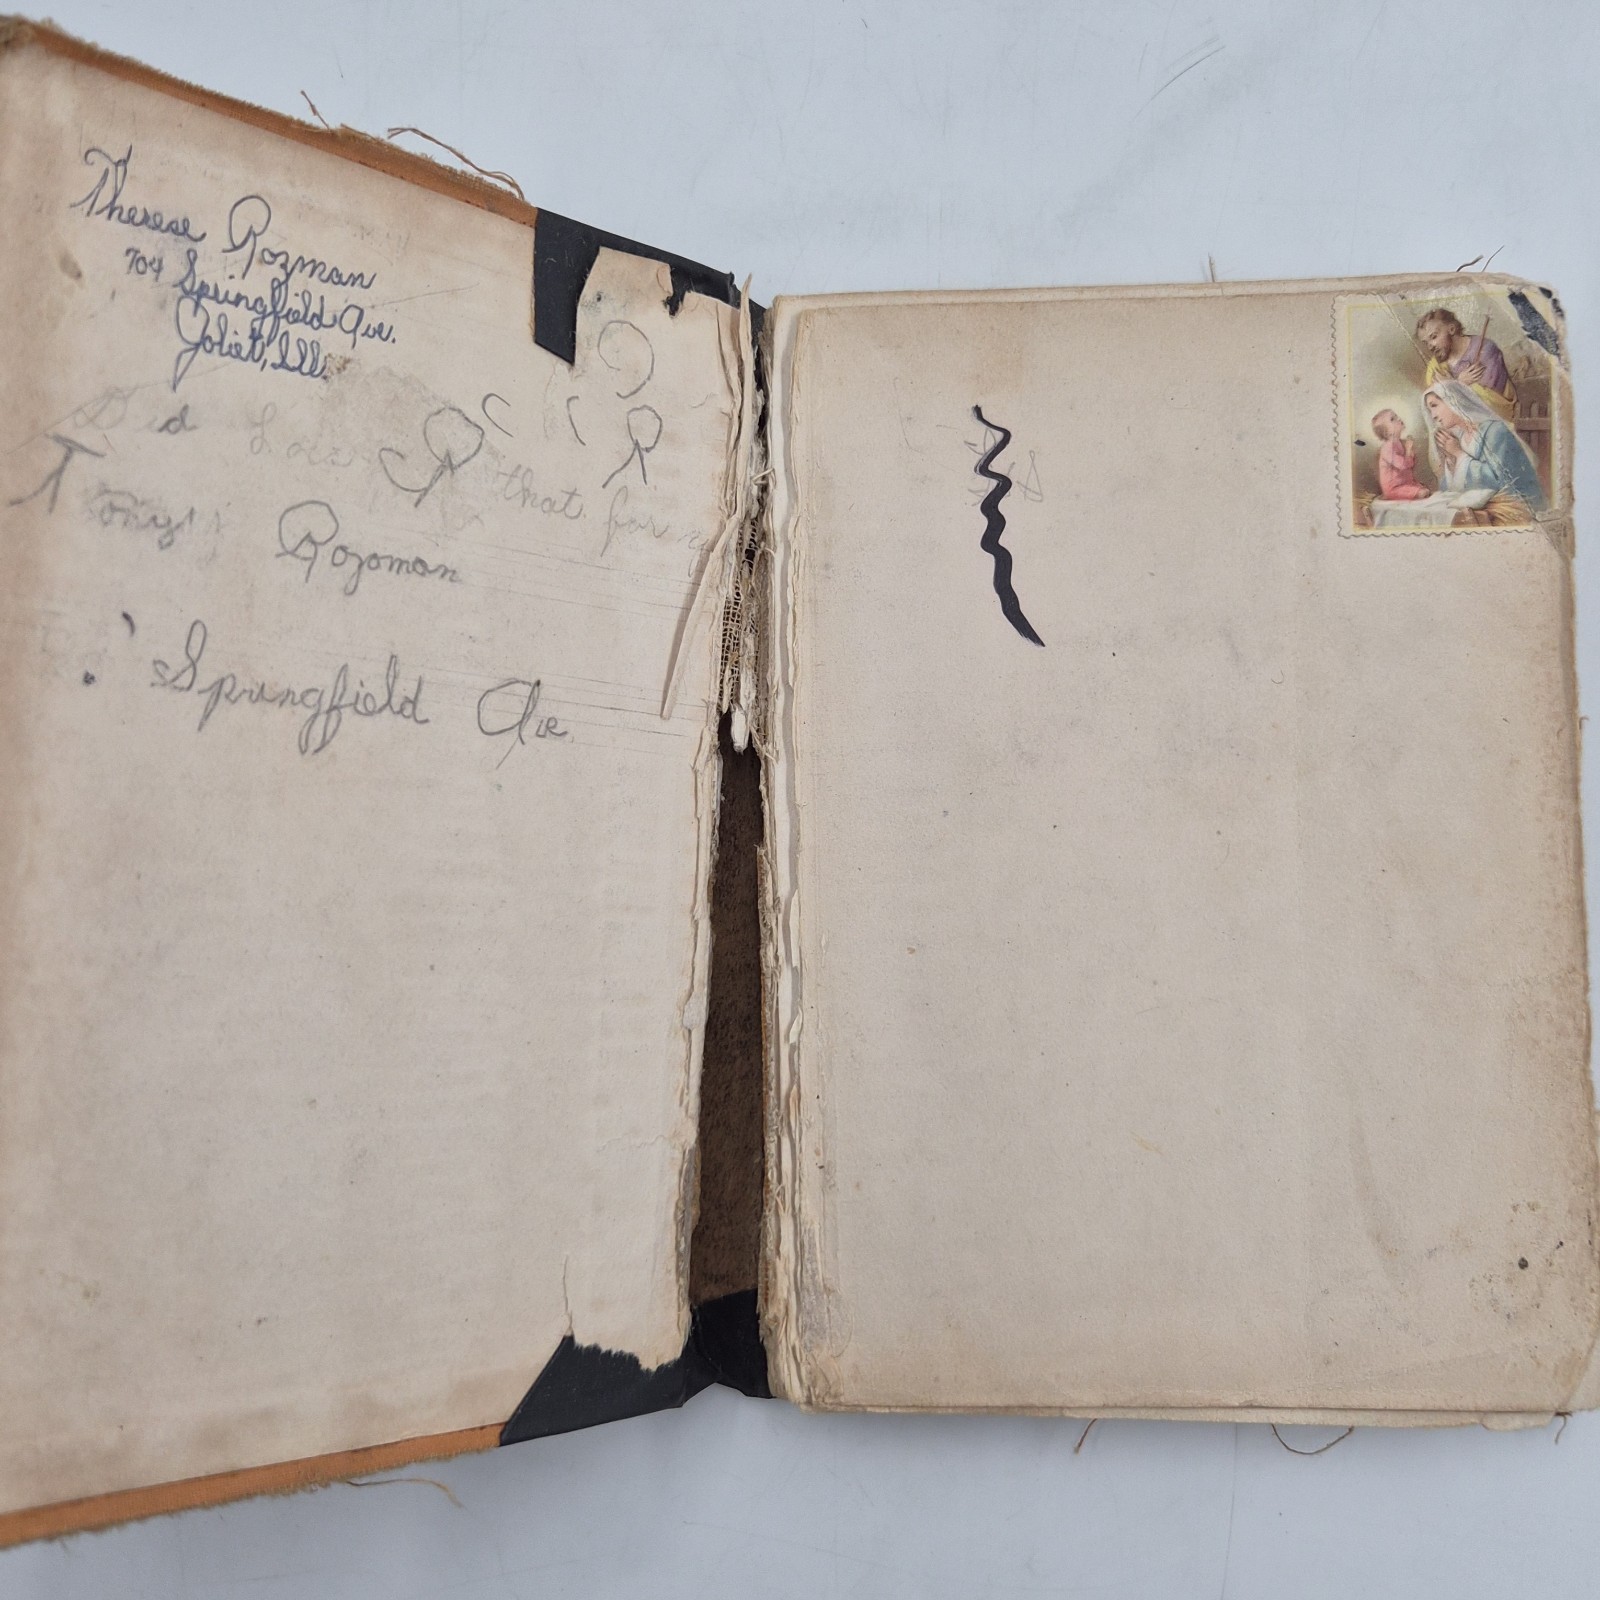 Therese Rozman
704 Springfield Ave.
Joliet, Ill.
R
R that for
Tony Rozoman
Springfield Ave.